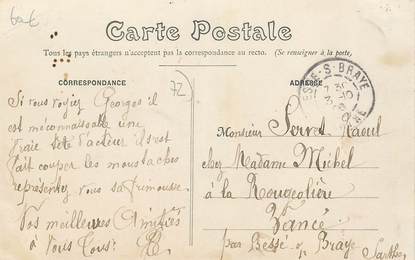 Carte Postale
Tous les pays étrangers n'acceptent pas la correspondance au recto. (Se renseigner à la poste)
CORRESPONDANCE
ADRESSE
72
BESSE-S-BRAYE
Si vous voyiez Georges il
est méconnaissable une
vraie tête d'acteur il s'est
fait couper les moustaches
représentez vous sa frimousse
Vos meilleures Amitiés
à Vous Tous
Monsieur Serres Raoul
chez Madame Michel
à la Rougeolière
Vancé
par Bessé s/ Braye
Sarthe